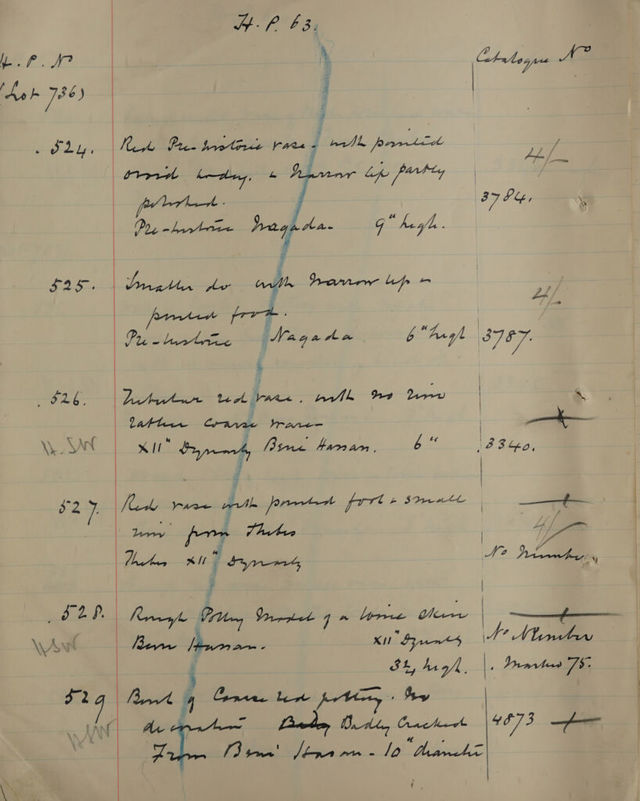 H. P. 63.
H. P. No Catalogue No
(Lot 736)
. 524. Red Pre-historic vase - with pointed 4/-
ovoid body. & narrow lip partly
polished. 3784.
Pre-historic Nagada - 9" high.
525. Smaller do with narrow lip & 4/-
pointed foot.
Pre-historic Nagada 6" high 3787.
. 526. Tubular red vase. with no rim
rather coarse ware -
H.SW XII" Dynasty Beni Hassan. 6" .3340.
527. Red vase with pointed foot & small
rim from Thebes 4/-
Thebes XII" Dynasty No Number
. 528. Rough Pottery Model of a wine skin
HSW Beni Hassan. XII" Dynasty No Number
3 3/4 high. . Marked 75.
529 Bowl of Coarse red pottery. No
HSW decoration Badly Cracked 4873
From Beni Hasan - 10" diameter